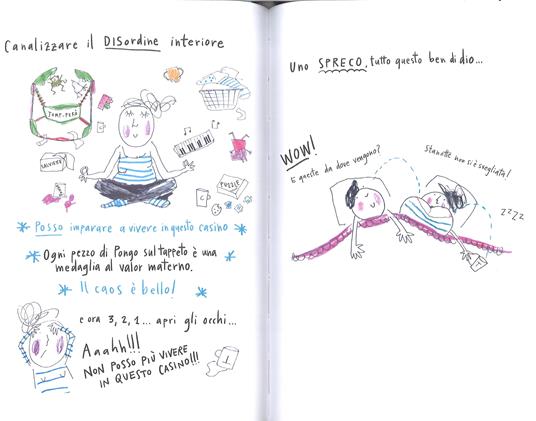 Canalizzare il DISordine interiore
JUMP-PERÙ
SALVIETTE
PUZZLE
Posso imparare a vivere in questo casino
Ogni pezzo di Pongo sul tappeto è una
medaglia al valor materno.
Il caos è bello!
e ora 3, 2, 1... apri gli occhi...
Aaahh!!!
NON POSSO PIÙ VIVERE
IN QUESTO CASINO!!!
Uno SPRECO, tutto questo ben di dio...
WOW!
E queste da dove vengono?
Stanotte non si è svegliata!
ZZZZ